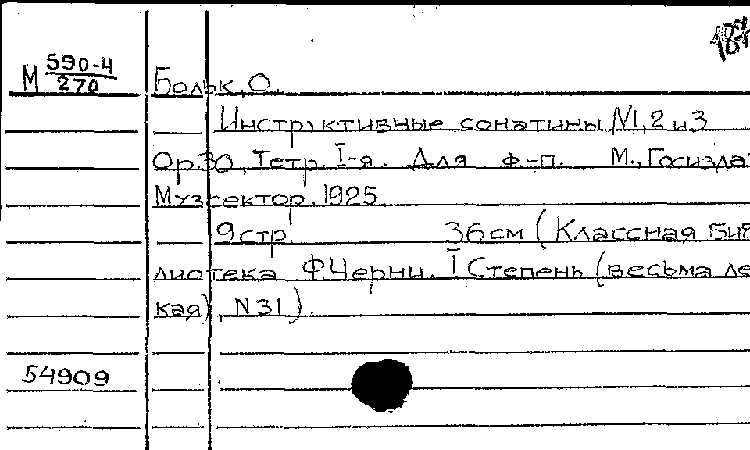 М 590-4/270 Больк, О.
Инструктивные сонатины N1, 2 и 3
Op.30, Тетр. I-я. Для ф.-п. М., Госизда
Музсектор, 1925.
9 стр. 36 см (Классная Биб
лиотека Ф. Черни. I Степень (весьма ле
кая), N 31).
54909